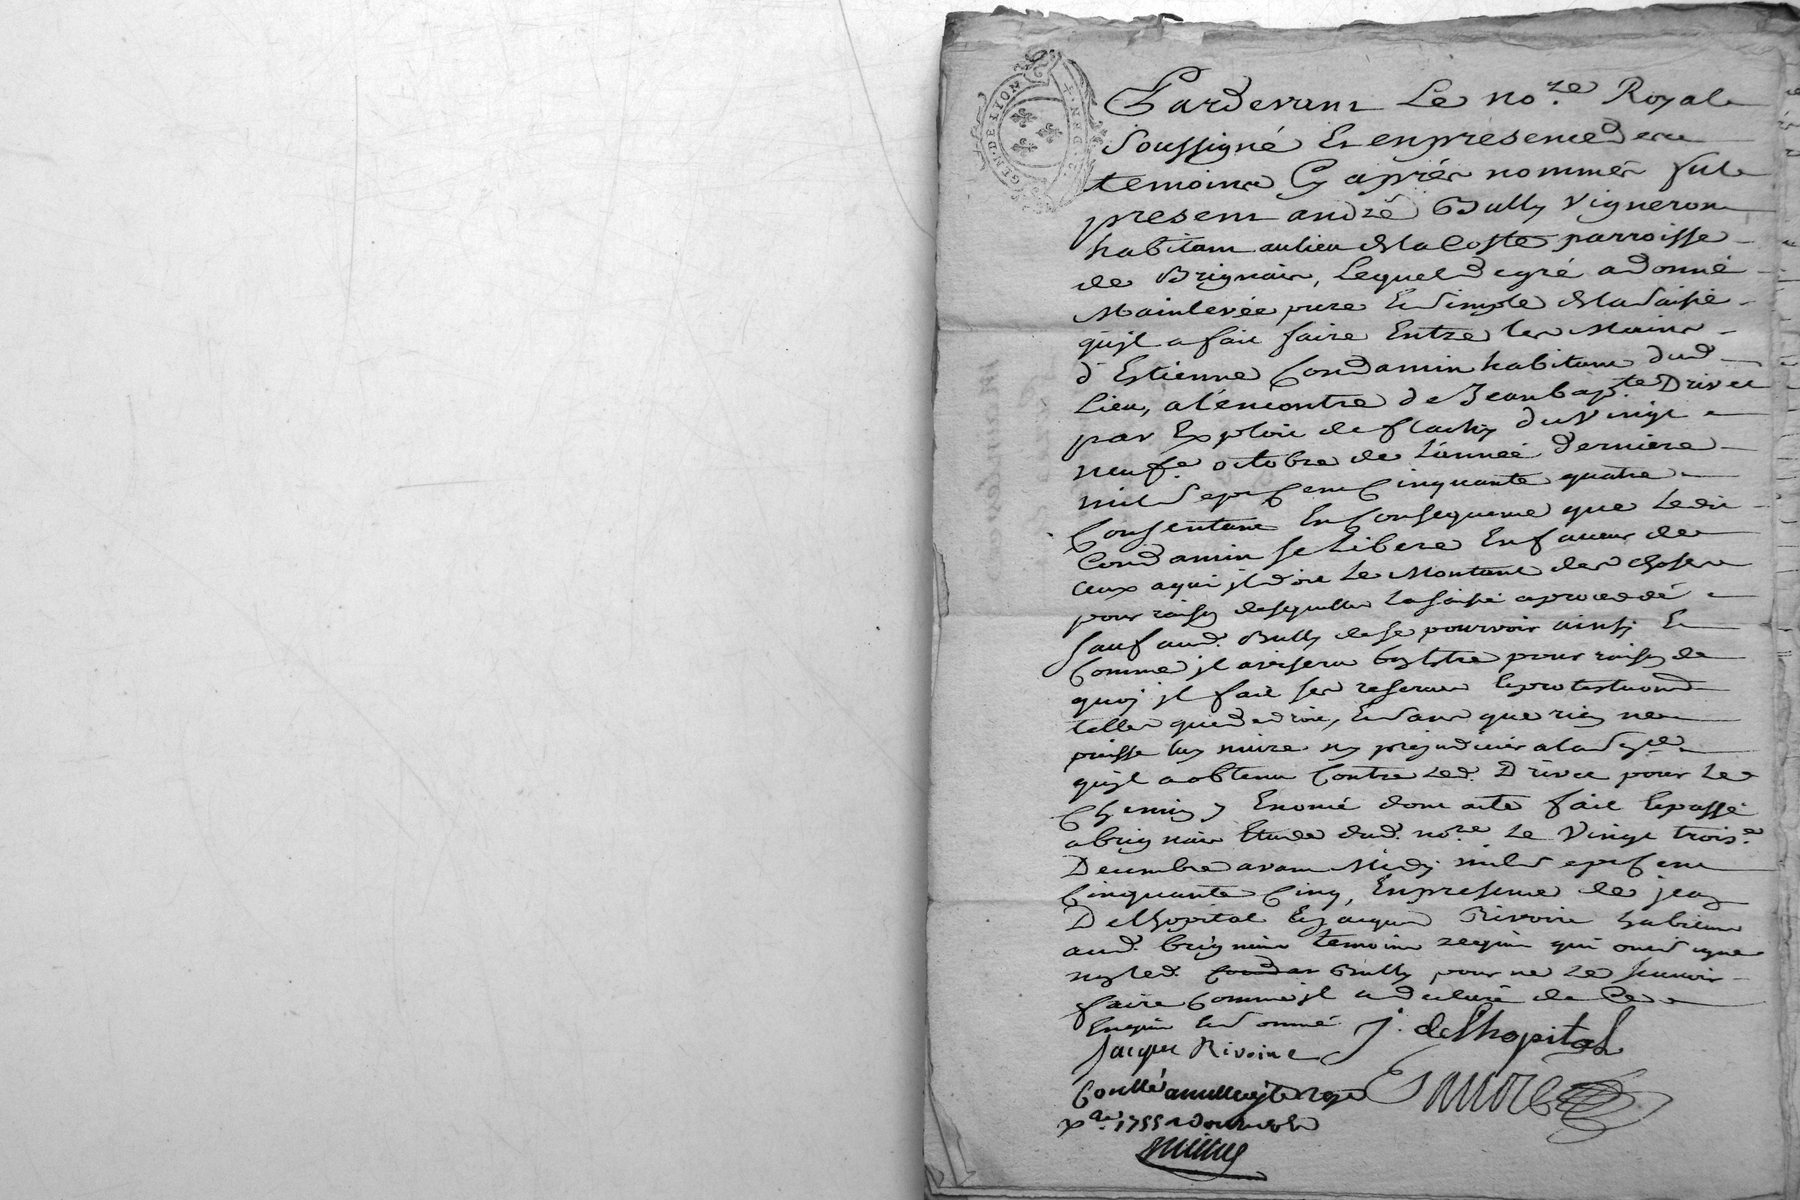 GEN. DE LION
Pardevant Le no.re Royal
soussigné Et en presence des
temoins Cy après nommés fut
present andré Bully vigneron
habitant au lieu de la Coste parroisse
de Brignais, Lequel de gré a donné
Mainlevée pure Et simple de la saisie
qu'jl a fait faire Entre les Mains
d'Estienne Condamin habitant dud.
Lieu, a l'encontre de Jean bap.te Drivet
par Exploit de flachy du Vingt
neuf.e octobre de L'année derniere
mil sept Cent Cinquante quatre
Consentant En Consequence que Ledit
Condamin se Libere En faveur de
Ceux a qui jl doit Le Montant des choses
pour raison desquelles La saisie a procedé
sauf aud. Bully de se pourvoir ainsy Et
Comme jl avisera bon Estre pour raison de
quoy jl fait ses reserves Et protestations
telles que de droit, Et sans que rien ne
puisse luy nuire ny prejudicier a la s.ce
qu'jl a obtenu Contre Led. Drivet pour Le
Chemin y Enoncé dont acte fait Et passé
a brignais Etude dud. no.re Le Vingt trois.e
Decembre avant Midy mil sept Cent
Cinquante Cinq, En presence de jean
Delhopital Et jacques Rivoire habitant
aud. brignais temoins requis qui ont signé
ny led. Bully pour ne Le scavoir
faire Comme jl a declaré de Ce
Enquis Et sommé.
J. delhopital
Jacques Rivoire
Conllé a
x.bre 1755